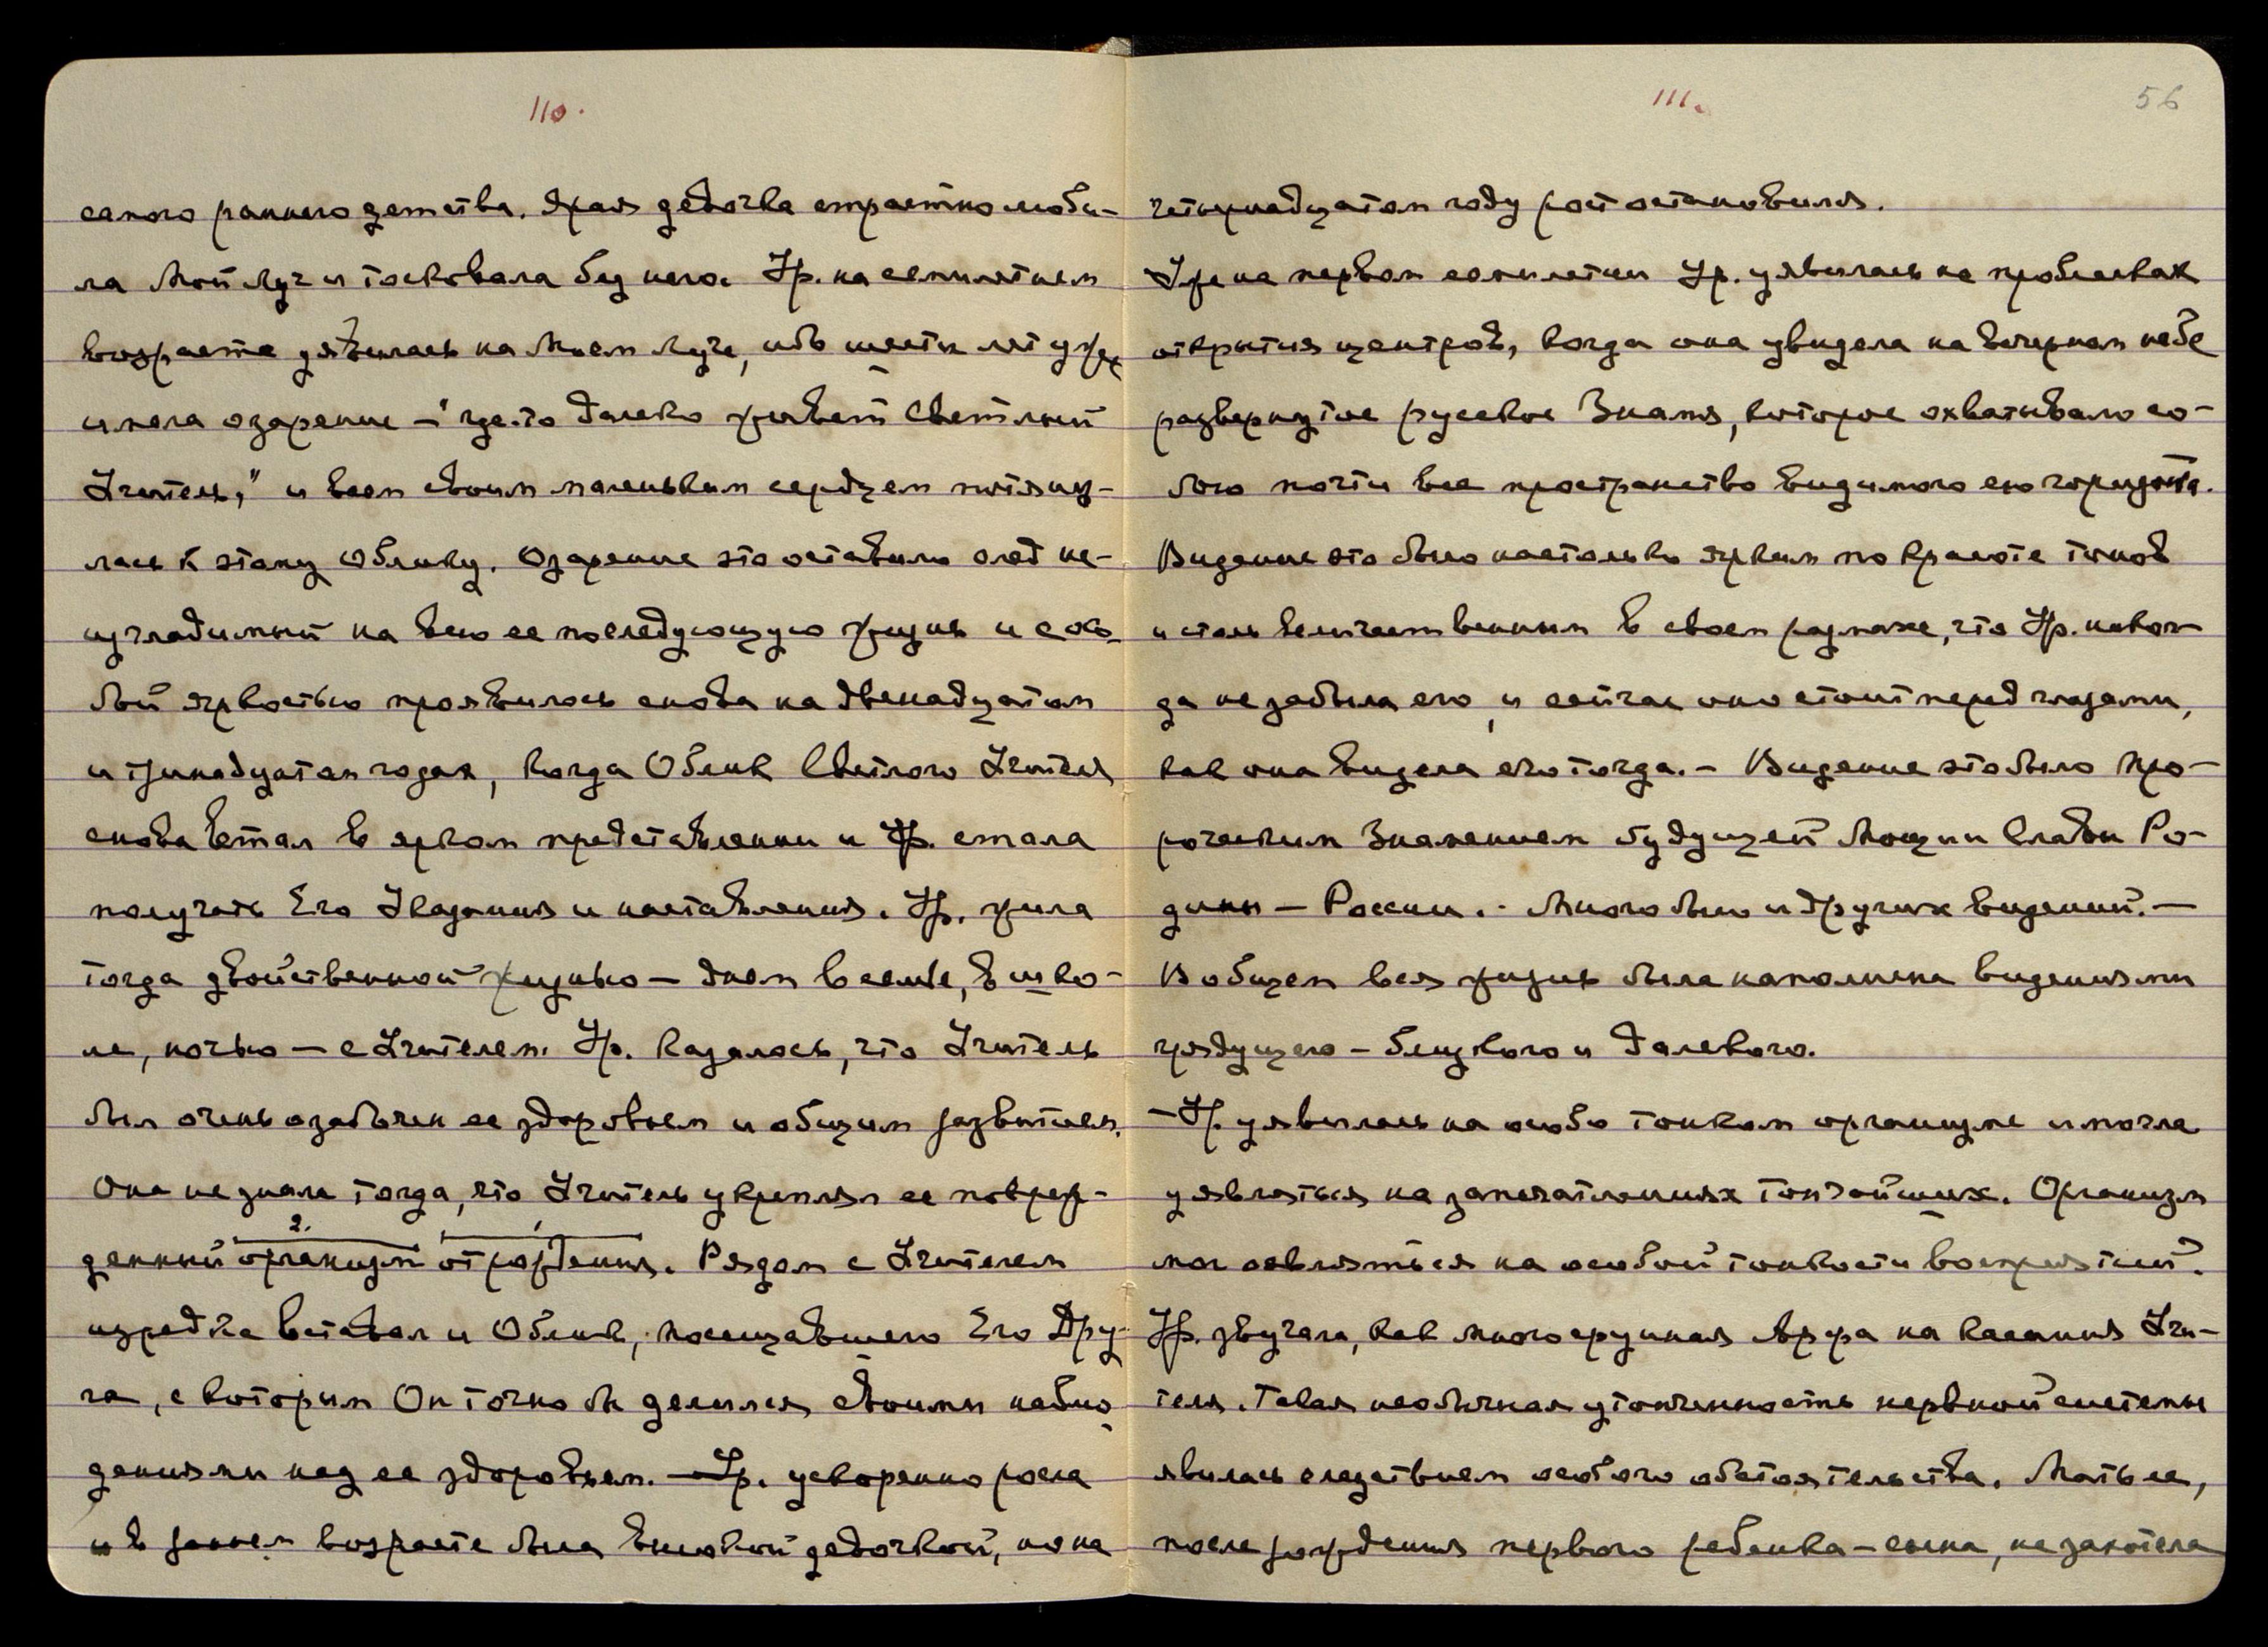 110.
самого раннего детства. Яраз девочка страстно люби-
ла Мой Луч и тосковала без него. Ур. на семилетнем
возрасте уявилась на Моем Луче, ибо шести лет уже
имела озарение — "где-то далеко живет Светлый
Учитель," и всем своим маленьким сердцем потяну-
лась к этому Облику. Озарение это оставило след не-
изгладимый на всю ее последующую жизнь и с осо-
бой яркостью проявилось снова на двенадцатом
и тринадцатом годах, когда Облик Светлого Учителя
снова встал в ярком представлении и Ур. стала
получать Его Указания и наставления. Ур. жила
тогда двойственной жизнью — днем в семье, в шко-
ле, ночью — с Учителем. Ур. казалось, что Учитель
был очень озабочен ее здоровьем и общим развитием.
Она не знала тогда, что Учитель укреплял ее повреж-
денный 2. организм 1. от рождения. Рядом с Учителем
изредка вставал и Облик, посещавшего Его Дру-
га, с которым Он точно бы делился своими наблю-
дениями над ее здоровьем. — Ур. ускоренно росла
и в раннем возрасте была высокой девочкой, но на
111. 56
четырнадцатом году рост остановился.
Уже на первом семилетии Ур. уявилась на проблесках
открытия центров, когда она увидела на вечернем небе
развернутое русское Знамя, которое охватывало со-
бою почти все пространство видимого ею горизонта.
Видение это было настолько ярким по красоте тонов
и столь величественным в своем размахе, что Ур. никог-
да не забыла его, и сейчас оно стоит перед глазами,
как она видела его тогда. — Видение это было про-
роческим Знамением будущей Мощи и Славы Ро-
дины — России. - Много было и других видений. —
В общем вся жизнь была наполнена видениями
грядущего — близкого и далекого.
— Ур. уявилась на особо тонком организме и могла
уявляться на запечатлениях тончайших. Организм
мог оявляться на особой тонкости восприятий.
Ур. звучала, как многострунная Арфа на касания Учи-
теля. Такая необычная утонченность нервной системы
явилась следствием особого обстоятельства. Мать ее,
после рождения первого ребенка — сына, не захотела